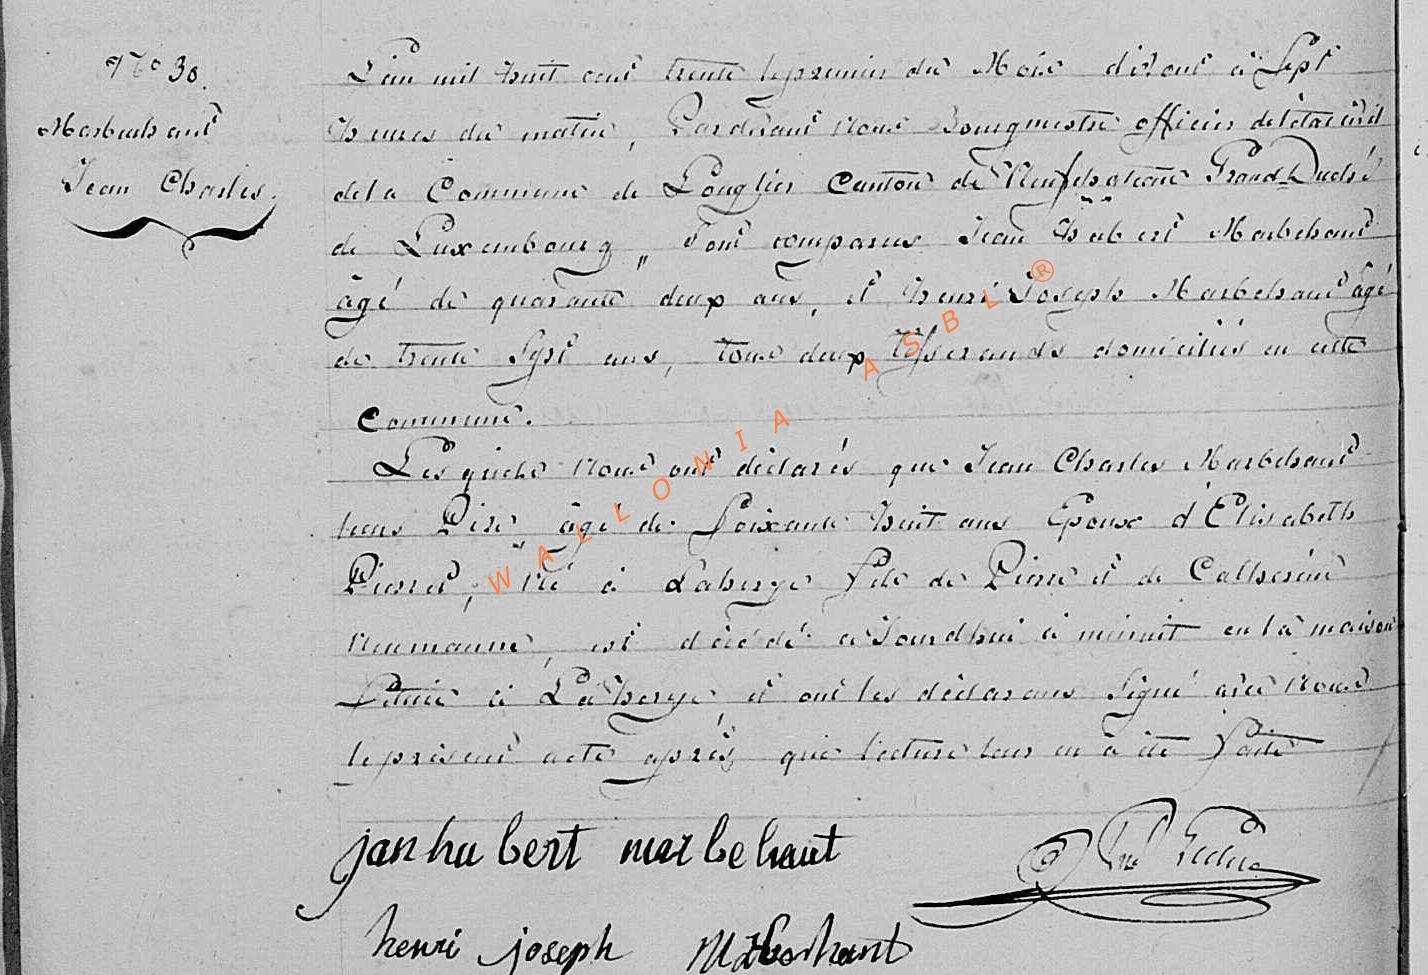 N° 30.
Marbehant
Jean Charles.
L'an mil huit cent trente le premier du Mois d'aout à Sept
heures du matin, Pardevant Nous Bourgmestre officier de l'état civil
de la Commune de Longlier Canton de Neufchateau Grand Duché
de Luxembourg, sont comparus Jean Hubert Marbehant
âgé de quarante deux ans, et henri Joseph Marbehant âgé
de trente Sept ans, tous deux tisserands domiciliés en cette
Commune.
Lesquels Nous ont déclarés que Jean Charles Marbehant
leur Père âgé de Soixante huit ans Epoux d'Elisabeth
Pierret, Né à Laherge fils de Pierre et de Catherine
Neumanne, est décédé aujourdhui à minuit en la maison
Située à Laherge et ont les déclarans Signé avec Nous
le présent acte après que lecture leur en a été faite
jan hubert marbehaut
henri joseph
WALLONIA ASBL ®